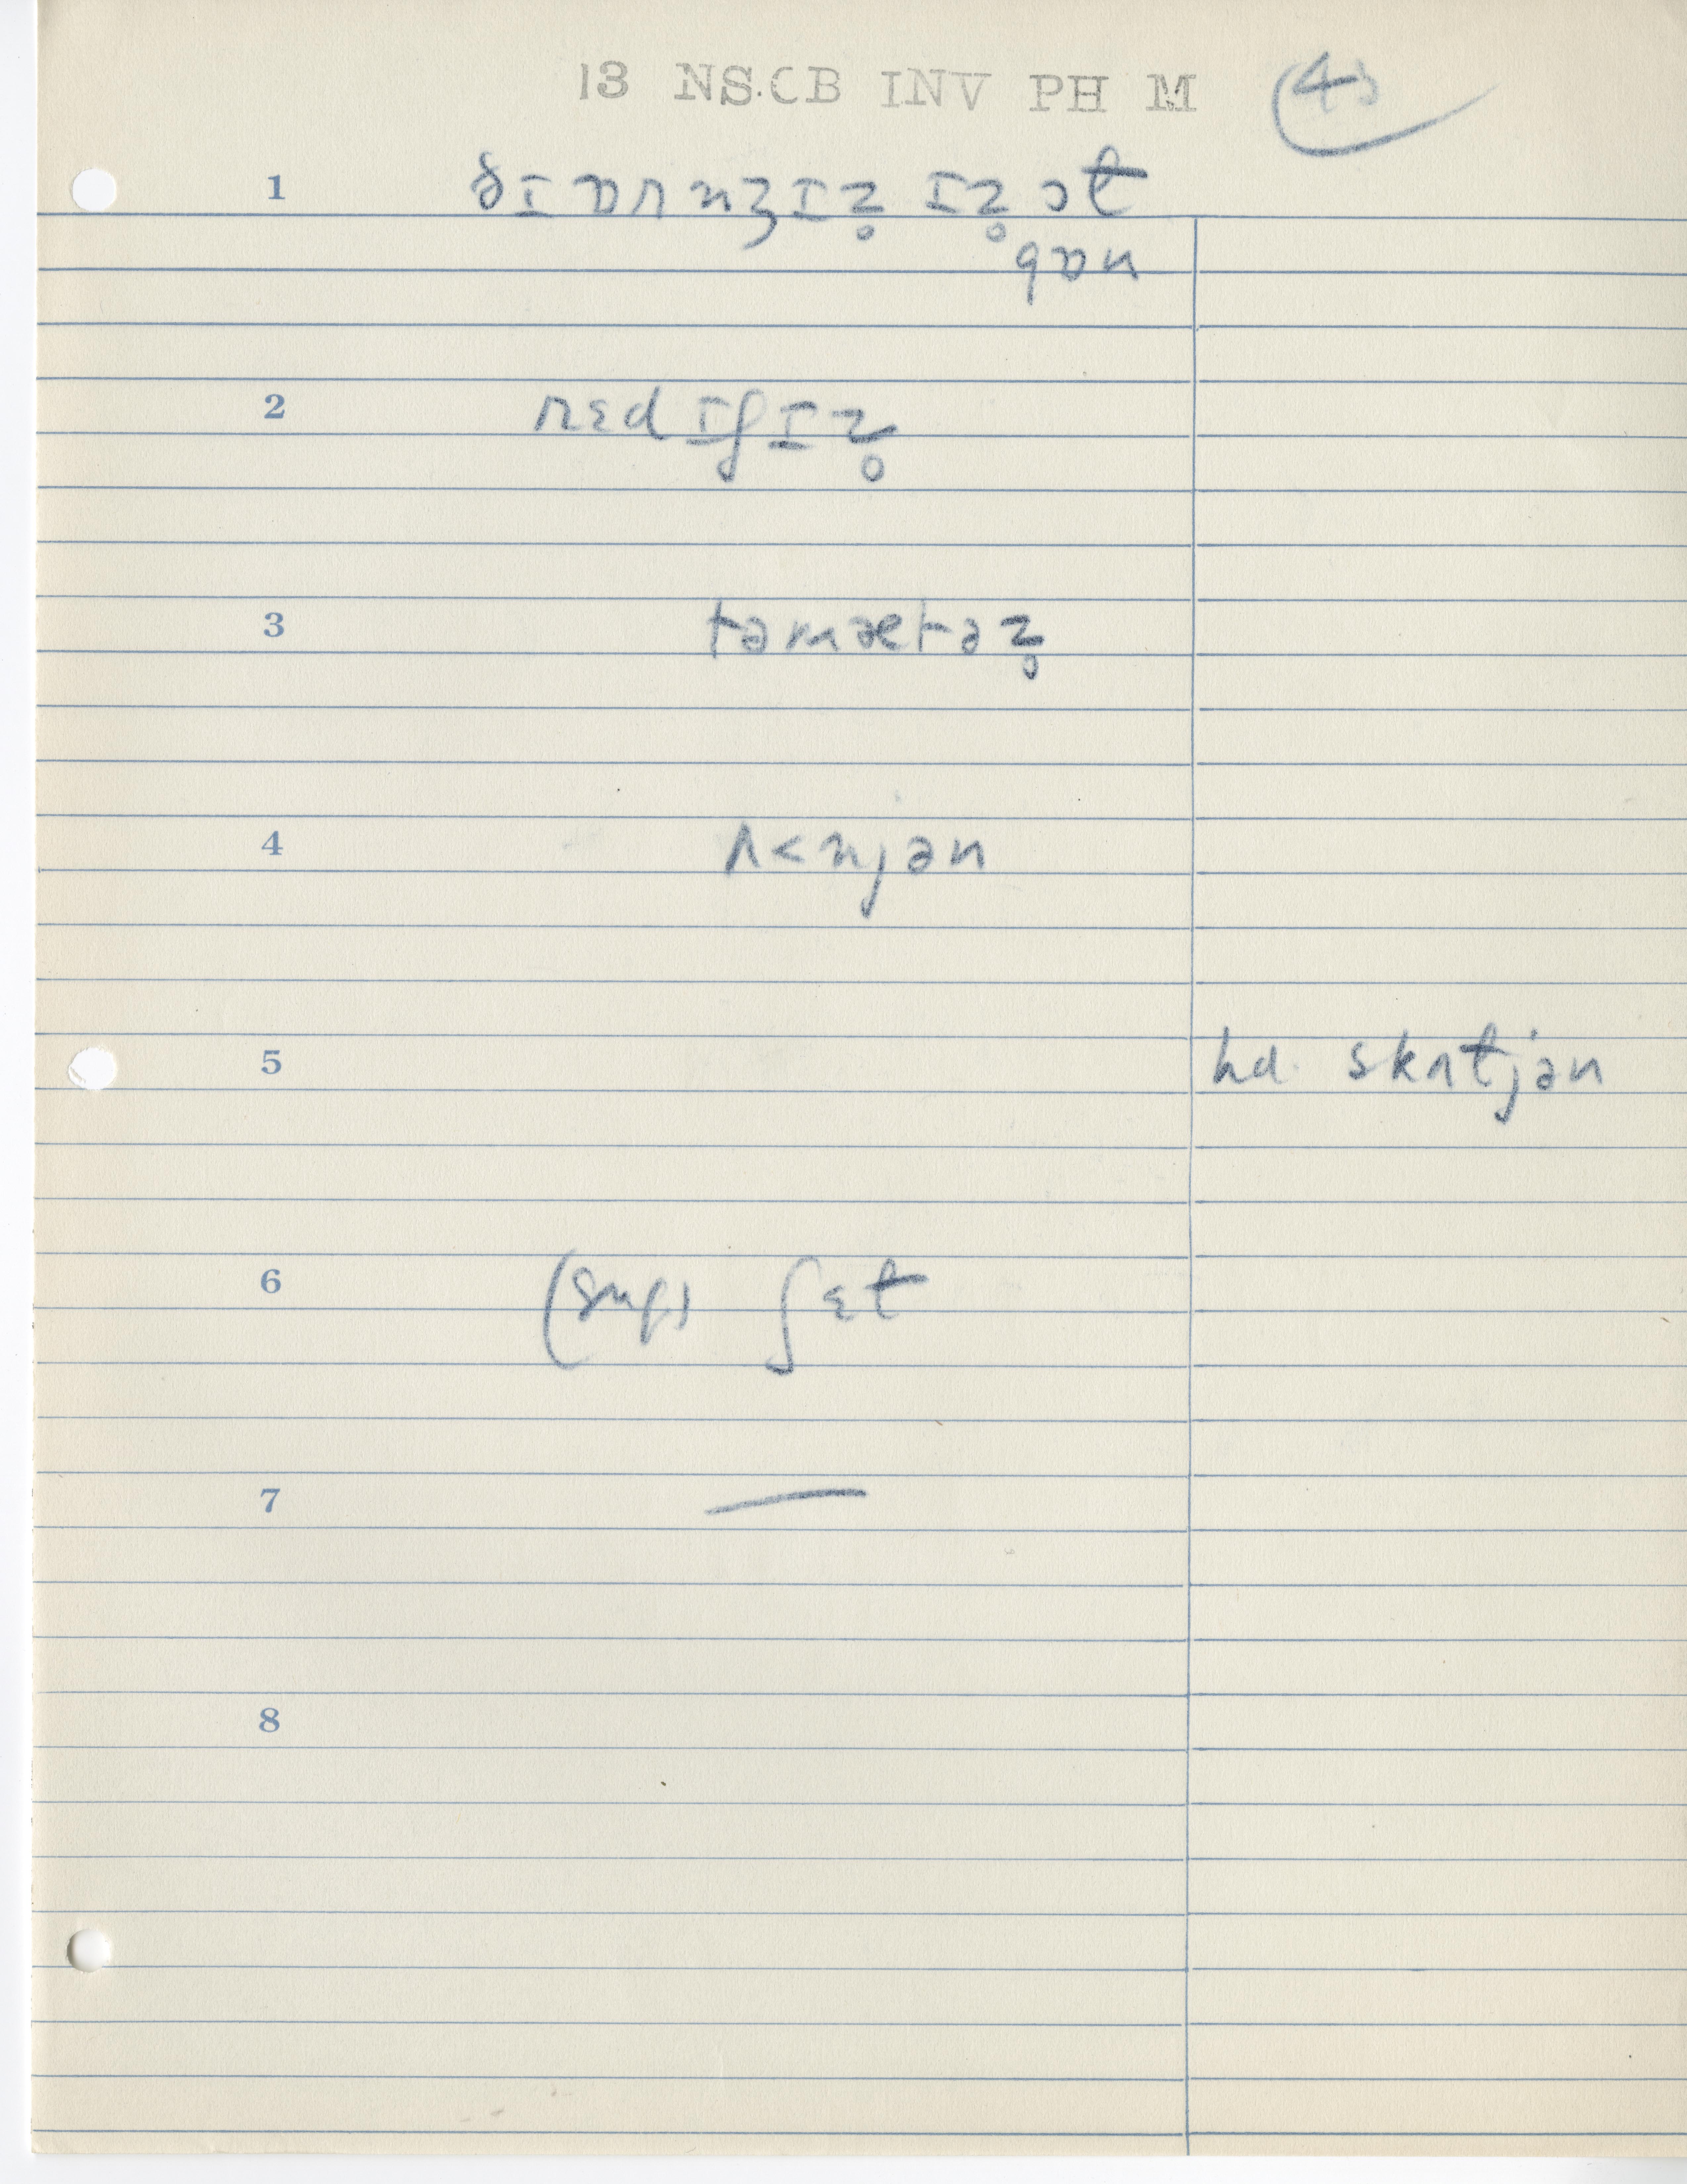 13 NS.CB INV PH M 43
1 ðɪ ɒrnʒɪz̥ ɪz̥ ɔt
gɒn
2 rɛdɪʃɪz̥
3 təmætəz̥
4 ʌnjən
5 hd. skʌtjən
6 (sug) ʃɛt
7 —
8